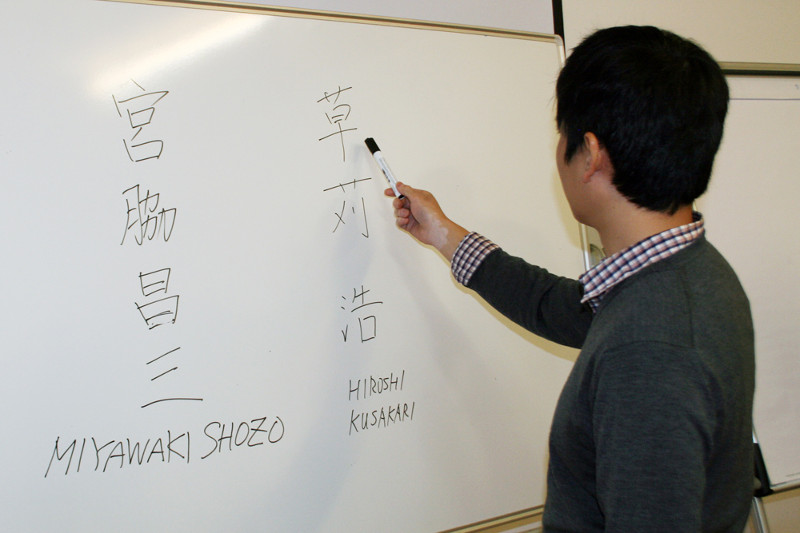 宮脇昌三
MIYAWAKI SHOZO
草苅浩
HIROSHI
KUSAKARI